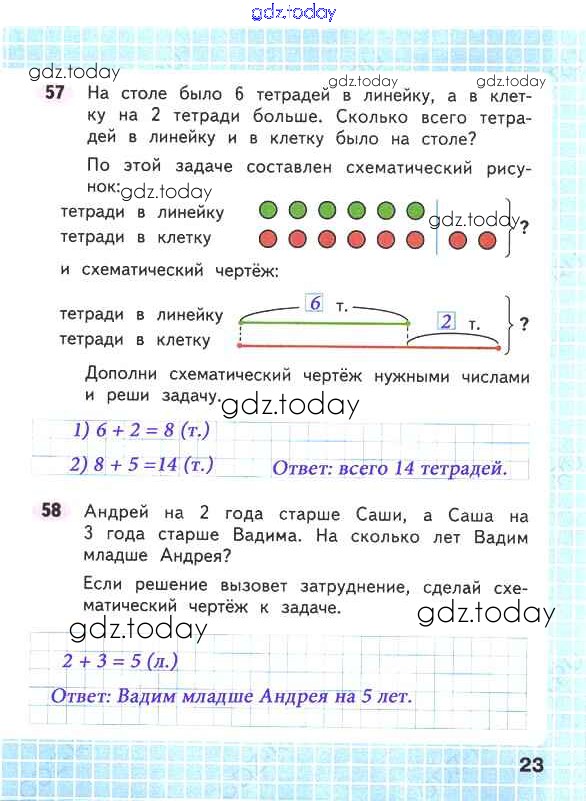 gdz.today
gdz.today
gdz.today
gdz.today
57 На столе было 6 тетрадей в линейку, а в клет-
ку на 2 тетради больше. Сколько всего тетра-
дей в линейку и в клетку было на столе?
По этой задаче составлен схематический рису-
нок:
gdz.today
тетради в линейку
gdz.today
?
тетради в клетку
и схематический чертёж:
6 т.
тетради в линейку
2 т.
?
тетради в клетку
Дополни схематический чертёж нужными числами
и реши задачу.
gdz.today
1) 6 + 2 = 8 (т.)
2) 8 + 5 =14 (т.) Ответ: всего 14 тетрадей.
58 Андрей на 2 года старше Саши, а Саша на
3 года старше Вадима. На сколько лет Вадим
младше Андрея?
Если решение вызовет затруднение, сделай схе-
матический чертёж к задаче.
gdz.today
gdz.today
2 + 3 = 5 (л.)
Ответ: Вадим младше Андрея на 5 лет.
23